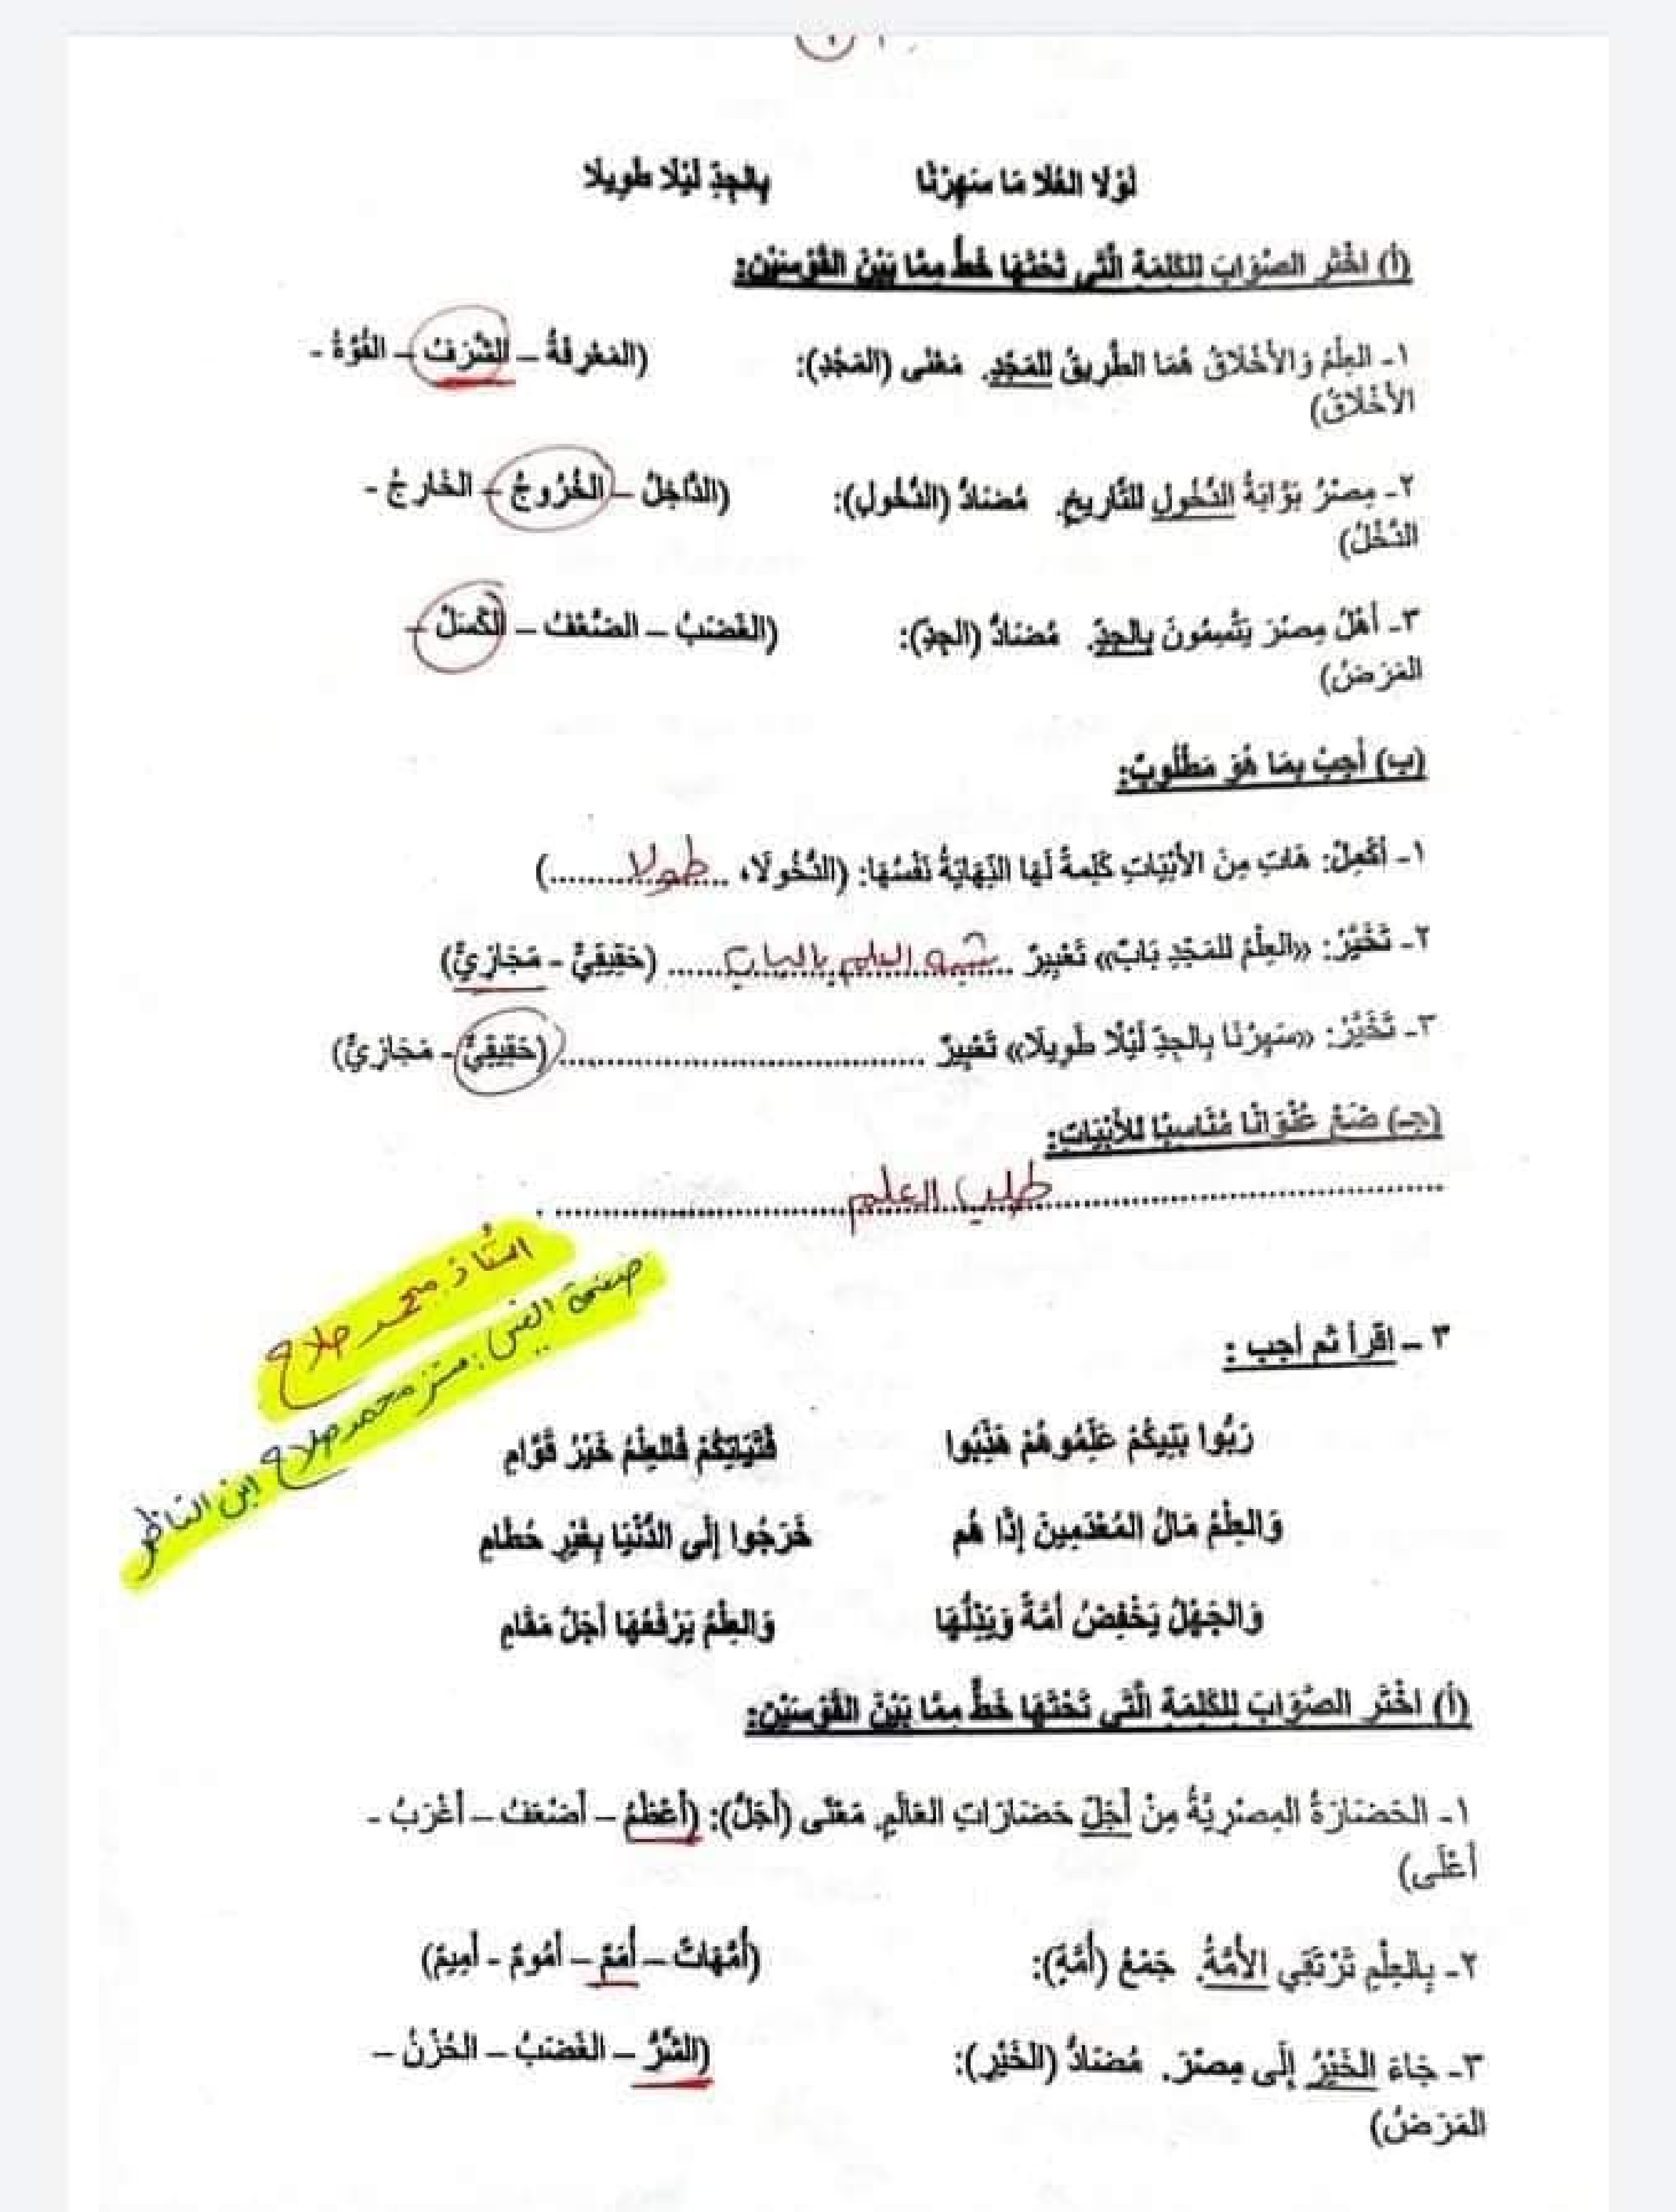 لَوْلَا العُلَا مَا سَهِرْنَا بِالجِدِّ لَيْلًا طَوِيلَا
(أ) اخْتَرِ الصَّوَابَ لِلكَلِمَةِ الَّتِي تَحْتَهَا خَطٌّ مِمَّا بَيْنَ القَوْسَيْنِ:
١- العِلْمُ وَالأَخْلَاقُ هُمَا الطَّرِيقُ للمَجْدِ. مَعْنَى (المَجْدِ): (المَعْرِفَةُ – الشَّرَفُ – القُوَّةُ -
الأَخْلَاقُ)
٢- مِصْرُ بَوَّابَةُ الدُّخُولِ للتَّارِيخِ. مُضَادُّ (الدُّخُولِ): (الدَّاخِلُ – الخُرُوجُ – الخَارِجُ -
الدَّخْلُ)
٣- أَهْلُ مِصْرَ يَتَّسِمُونَ بِالجِدِّ. مُضَادُّ (الجِدِّ): (الغَضَبُ – الضَّعْفُ – الكَسَلُ –
المَرَضُ)
(ب) أَجِبْ بِمَا هُوَ مَطْلُوبٌ:
١- أَكْمِلْ: هَاتِ مِنَ الأَبْيَاتِ كَلِمَةً لَهَا النِّهَايَةُ نَفْسُهَا: (الدُّخُولَا، ..... طولا .....)
٢- تَخَيَّرْ: «العِلْمُ للمَجْدِ بَابٌ» تَعْبِيرٌ ..... شبه العلم بالباب ..... (حَقِيقِيٌّ - مَجَازِيٌّ)
٣- تَخَيَّرْ: «سَهِرْنَا بِالجِدِّ لَيْلًا طَوِيلَا» تَعْبِيرٌ .............. (حَقِيقِيٌّ - مَجَازِيٌّ)
(جـ) ضَعْ عُنْوَانًا مُنَاسِبًا لِلأَبْيَاتِ:
..... طلب العلم .....
الستاذ محمد صلاح
صفحة الفيس: مستر محمد صلاح ابن الناظر
٣ – اقرأ ثم أجب :
رَبُّوا بَنِيكُمْ عَلِّمُوهُمْ هَذِّبُوا فَتَيَاتِكُمْ فَالعِلْمُ خَيْرُ قَوَّامِ
وَالعِلْمُ مَالُ المُعْدَمِينَ إِذَا هُم خَرَجُوا إِلَى الدُّنْيَا بِغَيْرِ حُطَامِ
وَالجَهْلُ يَخْفِضُ أُمَّةً وَيَذِلُّهَا وَالعِلْمُ يَرْفَعُهَا أَجَلَّ مَقَامِ
(أ) اخْتَرِ الصَّوَابَ لِلكَلِمَةِ الَّتِي تَحْتَهَا خَطٌّ مِمَّا بَيْنَ القَوْسَيْنِ:
١- الحَضَارَةُ المِصْرِيَّةُ مِنْ أَجَلِّ حَضَارَاتِ العَالَمِ. مَعْنَى (أَجَلُّ): (أَعْظَمُ – أَضْعَفُ – أَغْرَبُ -
أَعْلَى)
٢- بِالعِلْمِ تَرْتَقِي الأُمَّةُ. جَمْعُ (أُمَّةٍ): (أُمَّهَاتٌ – أُمَمٌ – أُمُومٌ - أَمِيمٌ)
٣- جَاءَ الخَيْرُ إِلَى مِصْرَ. مُضَادُّ (الخَيْرِ): (الشَّرُّ – الغَضَبُ – الحُزْنُ –
المَرَضُ)